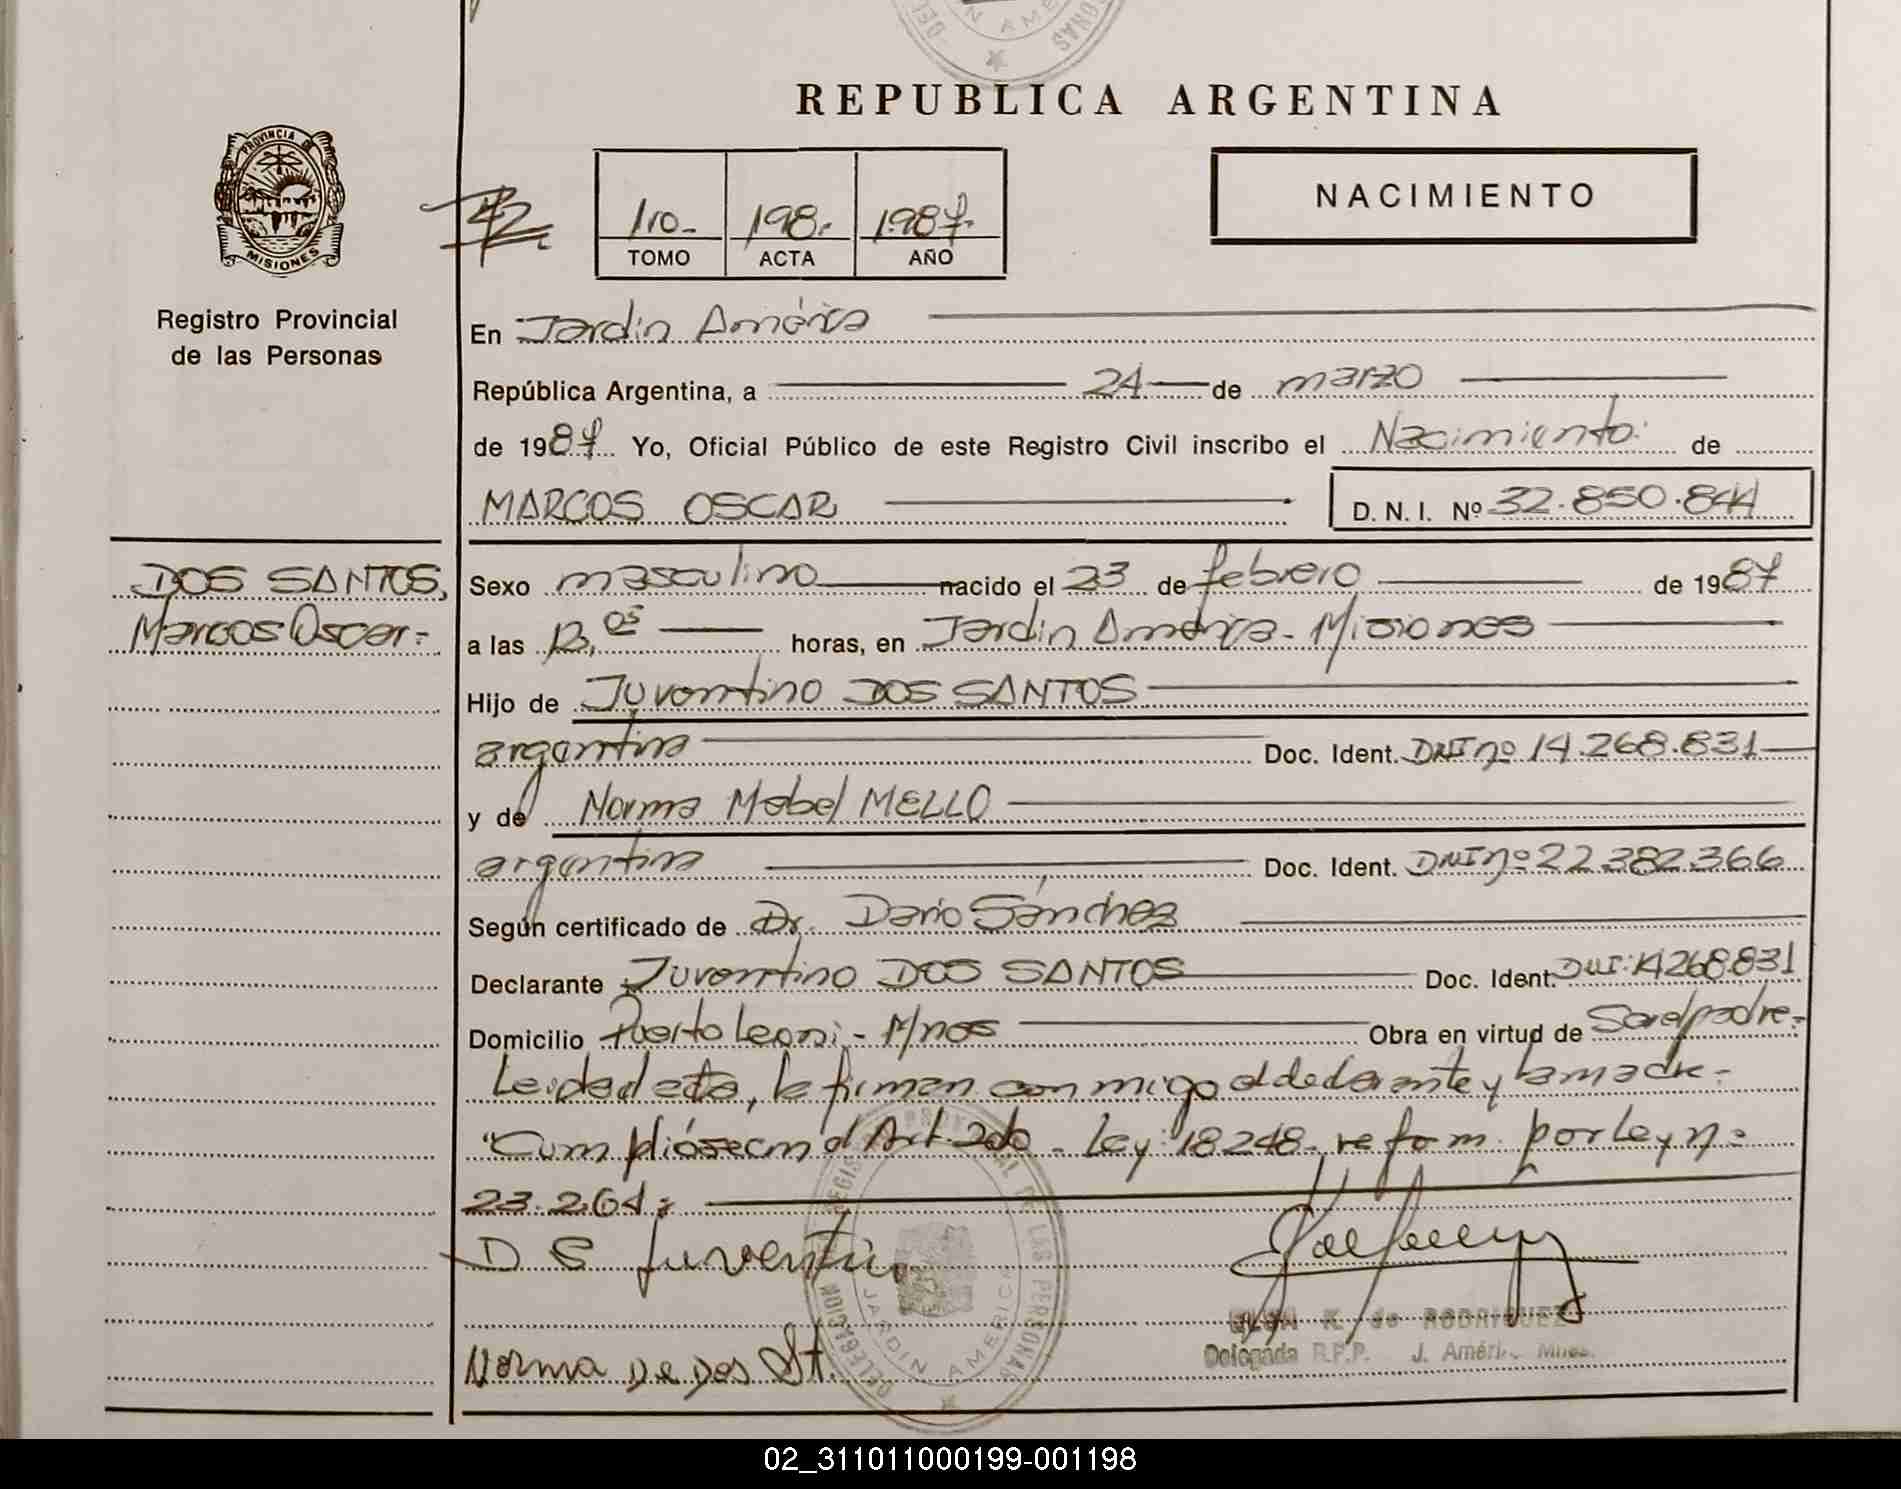 REPUBLICA ARGENTINA
PROVINCIA DE MISIONES
Registro Provincial
de las Personas
1ro- 198- 1.987-
TOMO ACTA AÑO
NACIMIENTO
En Jardín América
República Argentina, a 24 de marzo
de 1987 Yo, Oficial Público de este Registro Civil inscribo el Nacimiento de
MARCOS OSCAR D. N. I. Nº 32.850.844
DOS SANTOS,
Marcos Oscar-
Sexo masculino nacido el 23 de febrero de 1987
a las horas, en Jardín América - Misiones
Hijo de Juventino DOS SANTOS
argentina Doc. Ident. DNI nº 14.268.831
y de Norma Mabel MELLO
argentina Doc. Ident. DNI nº 22.382.366
Según certificado de Dr. Darío Sánchez
Declarante Juventino DOS SANTOS Doc. Ident. DNI: 14268831
Domicilio Puerto Leoni - Mnes Obra en virtud de Ser el padre-
Leída el acta, la firman conmigo el declarante y la madre-
"Cumplióse con el Art. 2do - Ley: 18248- reform. por Ley nº
23.264:
D S Juventin
Norma De Dos St.
DELEGACION REGISTRO PROVINCIAL DE LAS PERSONAS
JARDIN AMERICA
ELSA K. de RODRIGUEZ
Delegada R.P.P. J. Améri. Mnes.
02_311011000199-001198